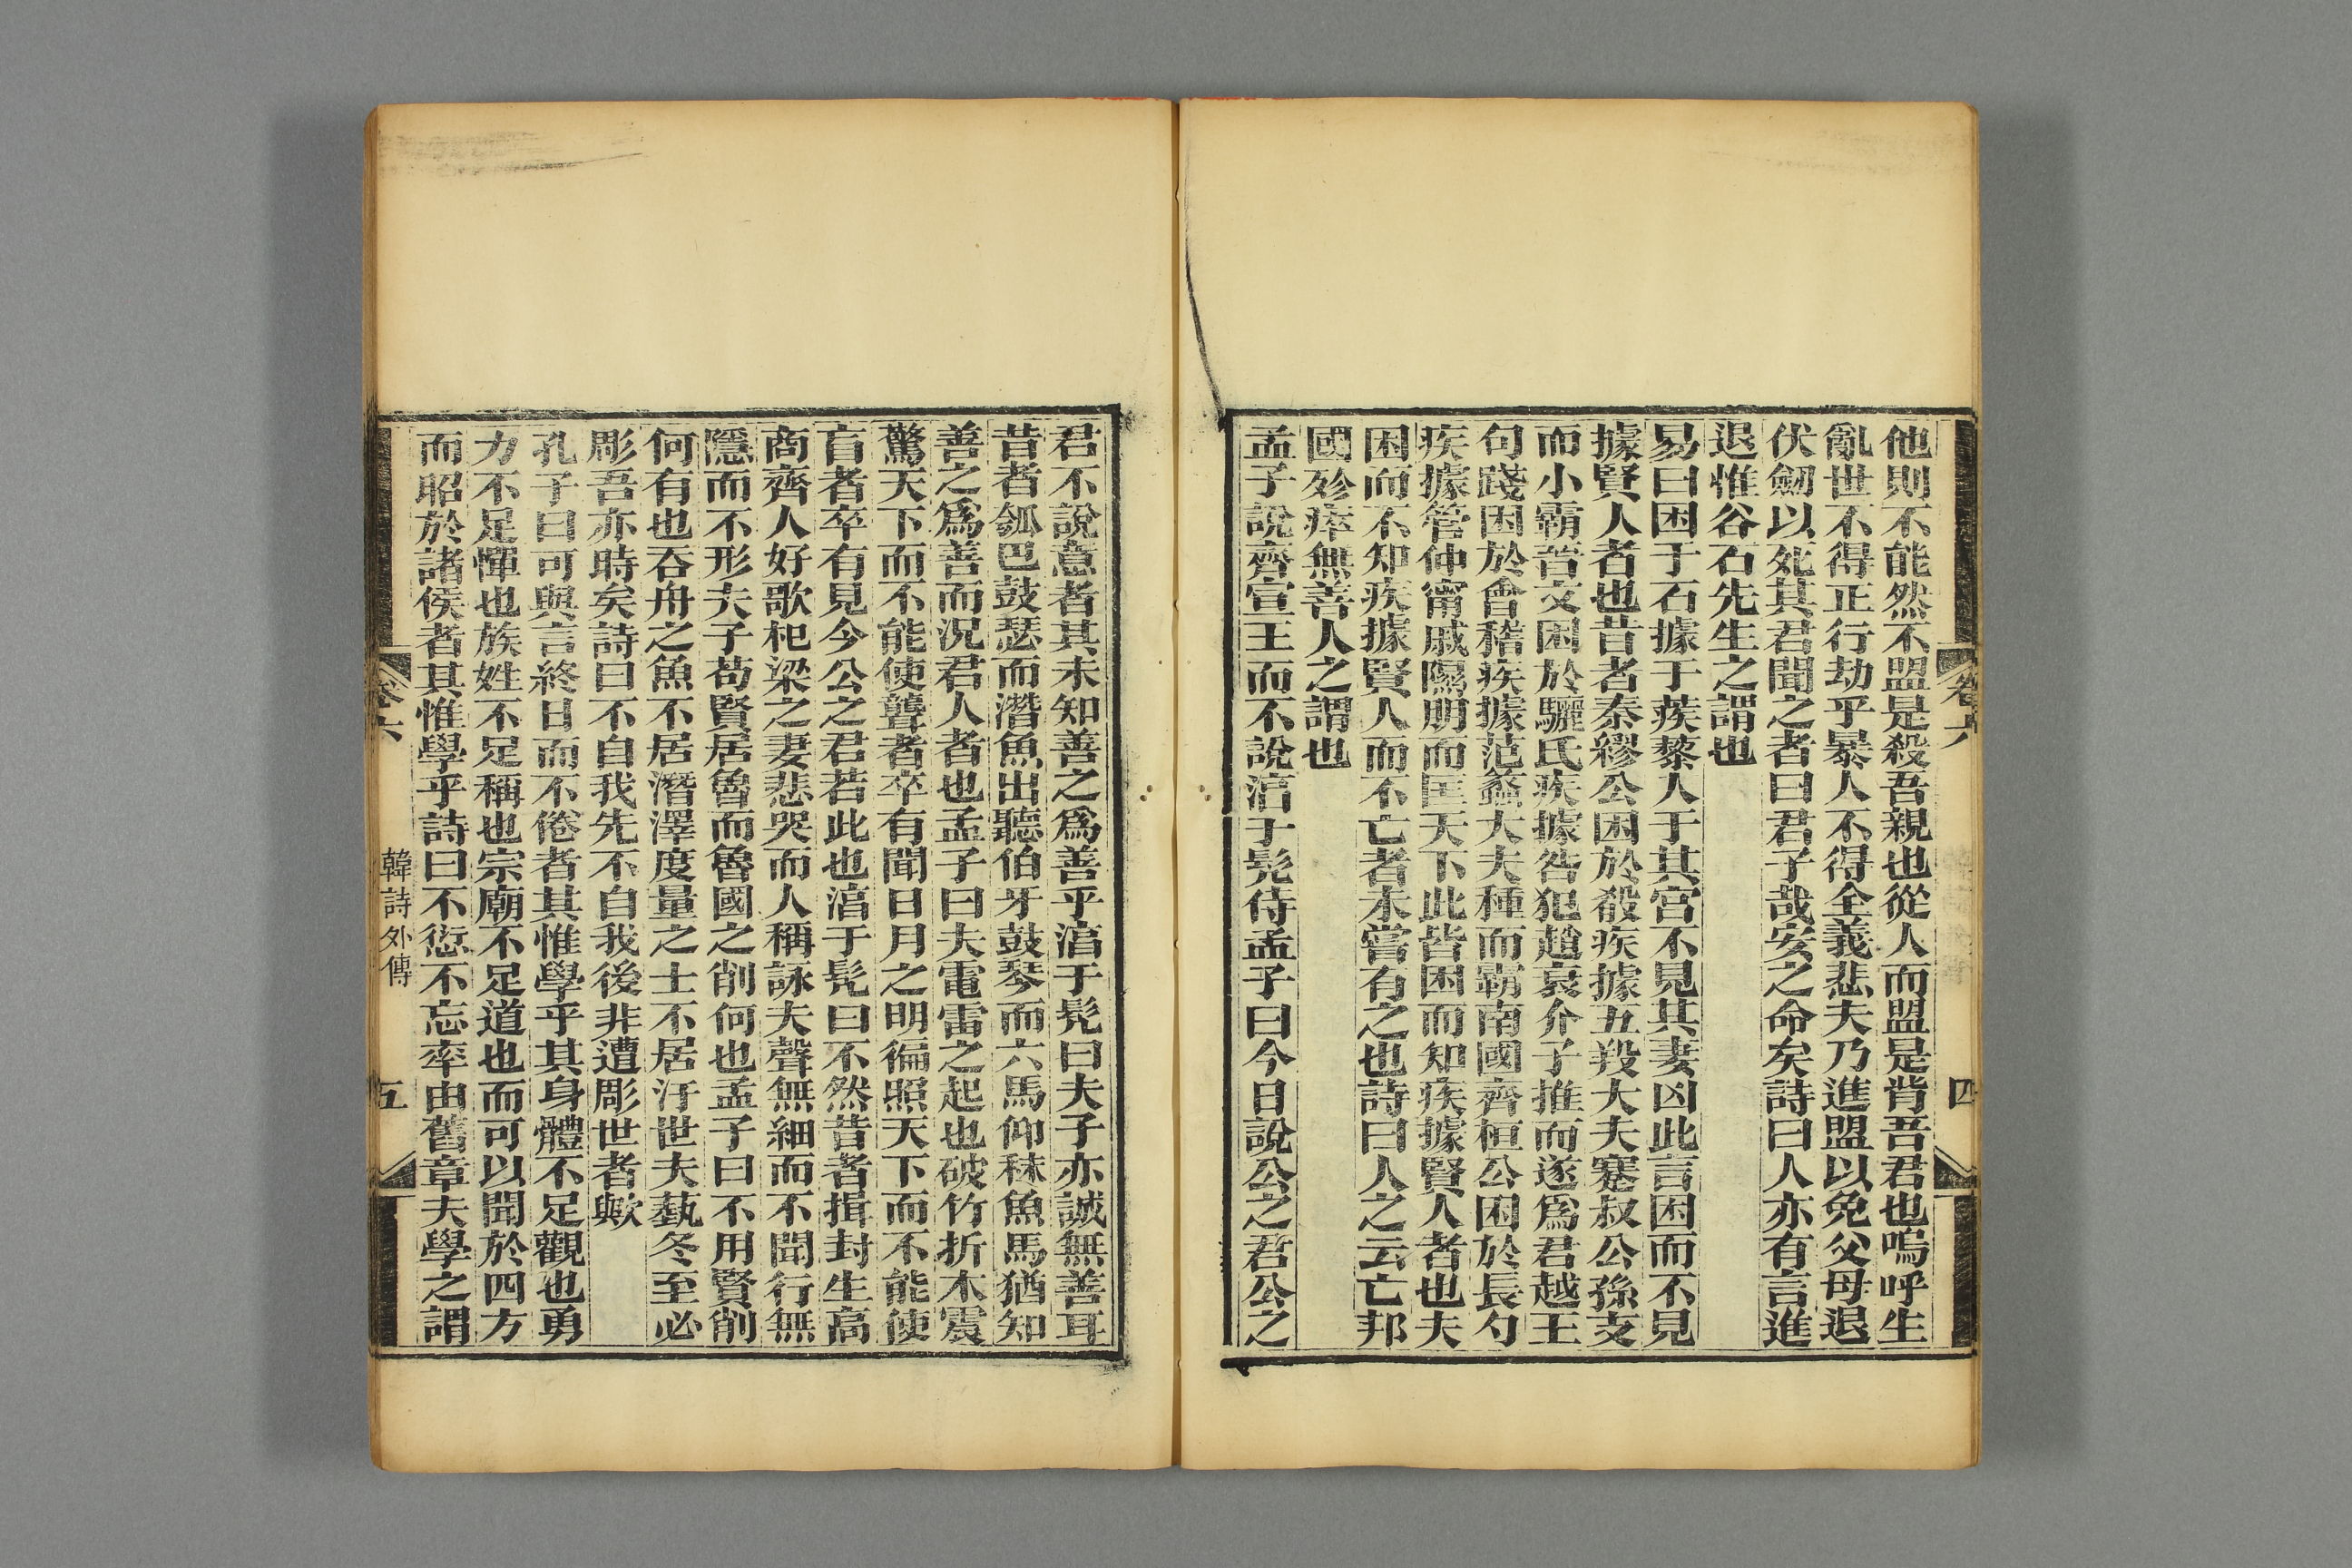 卷六
四
他則不能然不盟是殺吾親也從人而盟是背吾君也嗚呼生
亂世不得正行劫乎暴人不得全義悲夫乃進盟以免父母退
伏劒以死其君聞之者曰君子哉安之命矣詩曰人亦有言進
退惟谷石先生之謂也
易曰困于石據于蒺藜人于其宮不見其妻凶此言困而不見
據賢人者也昔者秦繆公困於殽疾據五羖大夫蹇叔公孫支
而小霸晉文困於驪氏疾據咎犯趙衰介子推而遂爲君越王
句踐困於會稽疾據范蠡大夫種而霸南國齊桓公困於長勺
疾據管仲甯戚隰朋而匡天下此皆困而知疾據賢人者也夫
困而不知疾據賢人而不亡者未嘗有之也詩曰人之云亡邦
國殄瘁無善人之謂也
孟子說齊宣王而不說湻于髠侍孟子曰今日說公之君公之
君不說意者其未知善之爲善乎湻于髠曰夫子亦誠無善耳
昔者瓠巴鼓瑟而潛魚出聽伯牙鼓琴而六馬仰秣魚馬猶知
善之爲善而況君人者也孟子曰夫電雷之起也破竹折木震
驚天下而不能使聾者卒有聞日月之明徧照天下而不能使
盲者卒有見今公之君若此也湻于髠曰不然昔者揖封生高
商齊人好歌杞梁之妻悲哭而人稱詠夫聲無細而不聞行無
隱而不形夫子苟賢居魯而魯國之削何也孟子曰不用賢削
何有也吞舟之魚不居潛澤度量之士不居汙世夫藝冬至必
彫吾亦時矣詩曰不自我先不自我後非遭彫世者歟
孔子曰可與言終日而不倦者其惟學乎其身體不足觀也勇
力不足憚也族姓不足稱也宗廟不足道也而可以聞於四方
而昭於諸侯者其惟學乎詩曰不愆不忘率由舊章夫學之謂
卷六
韓詩外傳
五